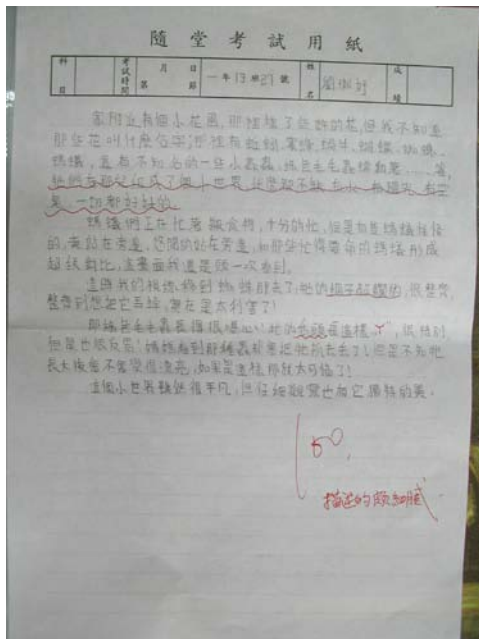 隨堂考試用紙
科目 考試時間 月 日 第 節 一年13班27號 姓名 劉 成績
家附近有個小花園,那裡種了些許的花,但我不知道
那些花叫什麼名字;那裡有蚯蚓、蜜蜂、蝸牛、蝴蝶、蜘蛛、
螞蟻,還有不知名的一些小蟲蟲、綠色毛毛蟲
牠們在那兒組成了個小世界,什麼都不缺
一切都好好的。
螞蟻們正在忙著搬食物,十分的忙,但是有隻螞蟻怪怪
的,竟站在旁邊,悠閒的站在旁邊,和那些忙得要命的螞蟻形成
超級對比,這畫面我還是頭一次看到。
這時我們的視線移到蜘蛛那去了,牠的網子 的,很整齊,
整齊到想把它弄掉,實在是太利害了!
那綠色毛毛蟲長得很噁心!牠的 是這樣Y,很特別
但是也很反胃!媽媽看到那種蟲就會把牠 去了!但是不知牠
長大後會不會變很漂亮,如果是這樣那就太可惜了!
這個小世界雖然很平凡,但仔細觀賞也有它獨特的美。
100.
描述的頗細膩